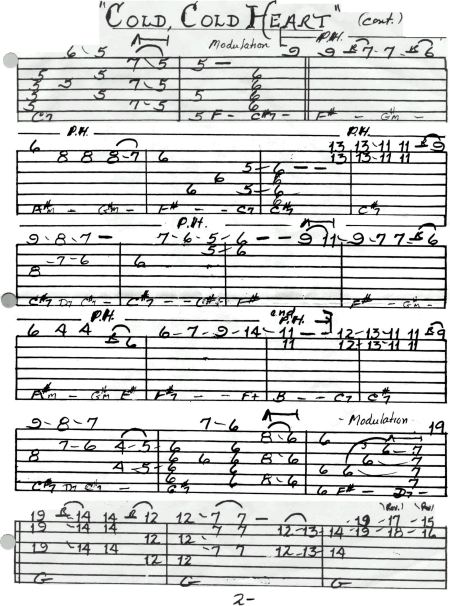 "COLD, COLD HEART" (cont.)
A
6 - 5 7 - 5 Modulation 9 P.H. 9 - B - 7 - 7 - B 6
7 - 5 5 —
5 5 6
5 5 5 6
5 5 5 6
5 7-5 6
C7 5 F - C#7 - F# - G#m -
P.H. P.H.
6 8 8 8-7 6 13 13-11 11 B 9
13 13-11 11
5 - 6 - -
6 6
6 5 - 6
A#m - G#m - F# - - C7 C#7 C#7
P.H. A
9-8-7 — 7-6-5-6 - - 9 11 - 9-7 7 B 6
5-6
-7-6 6
8
C#7 D7 C#7 - C#7 - - F# F# - G#m -
P.H. and P.H.
6 4 4 B 6 6-7-9-14-11 - - 12-13-11 11 B 9
11 12-13-11 11
A#m - G#m F# F#7 - - F+ B - - C7 C#7
9-8-7 7-6 A - Modulation - 19
7-6 4-5 6 6 8-6 6 A 6-7
8 6 6 6 6 5 6-7
4-5 6 6 8-6 6 6 7
C#7 D7 C#7 - G#7 6 F# - D7 -
(Rev.) Rev.
19 B 14 14 B 12 12-7 7 — 19 -17 -15
19 -14 14 12-7 7 12-13 14 -19 -18 -16
19 -14 14 12 12 -7 7 12-13 14
12 12
G G G
2-